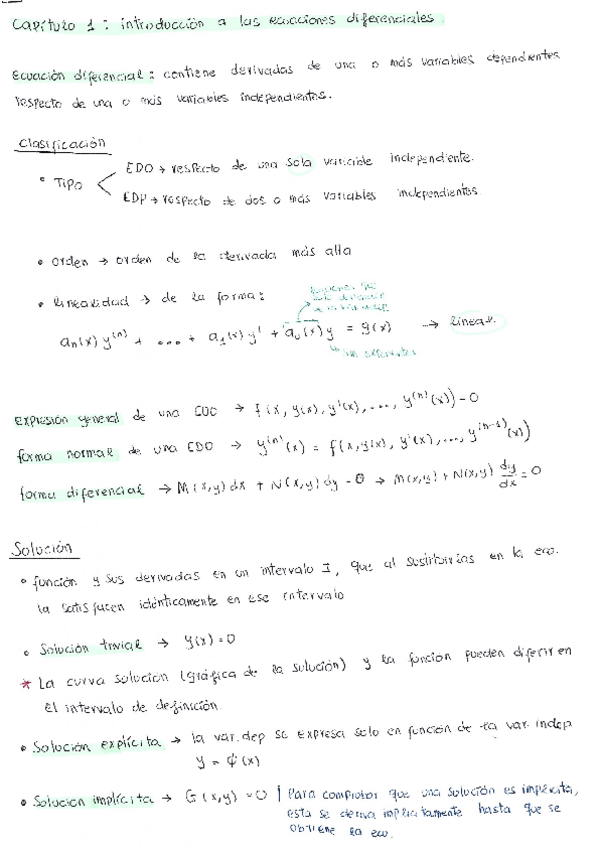 Capítulo 1: introducción a las ecuaciones diferenciales.
Ecuación diferencial: contiene derivadas de una o más variables dependientes
respecto de una o más variables independientes.
Clasificación
• Tipo
EDO → respecto de una sola variable independiente.
EDP → respecto de dos o más variables independientes
• orden → orden de la derivada más alta
• linealidad → de la forma:
aₙ(x) y⁽ⁿ⁾ + ... + a₁(x) y' + a₀(x) y = g(x) → lineal.
Expresión general de una EDO → f(x, y(x), y'(x), ..., y⁽ⁿ⁾(x)) = 0
forma normal de una EDO → y⁽ⁿ⁾(x) = f(x, y(x), y'(x), ..., y⁽ⁿ⁻¹⁾(x))
forma diferencial → M(x,y) dx + N(x,y) dy = 0 → M(x,y) + N(x,y) dy/dx = 0
Solución
• función y sus derivadas en un intervalo I, que al sustituirlas en la ecu.
la satisfacen idénticamente en ese intervalo
• Solución trivial → y(x) = 0
* La curva solución (gráfica de la solución) y la función pueden diferir en
el intervalo de definición.
• Solución explícita → la var. dep se expresa solo en función de la var. indep
y = ψ(x)
• Solución implícita → G(x,y) = 0 | Para comprobar que una solución es implícita,
esta se deriva implícitamente hasta que se
obtiene la ecu.